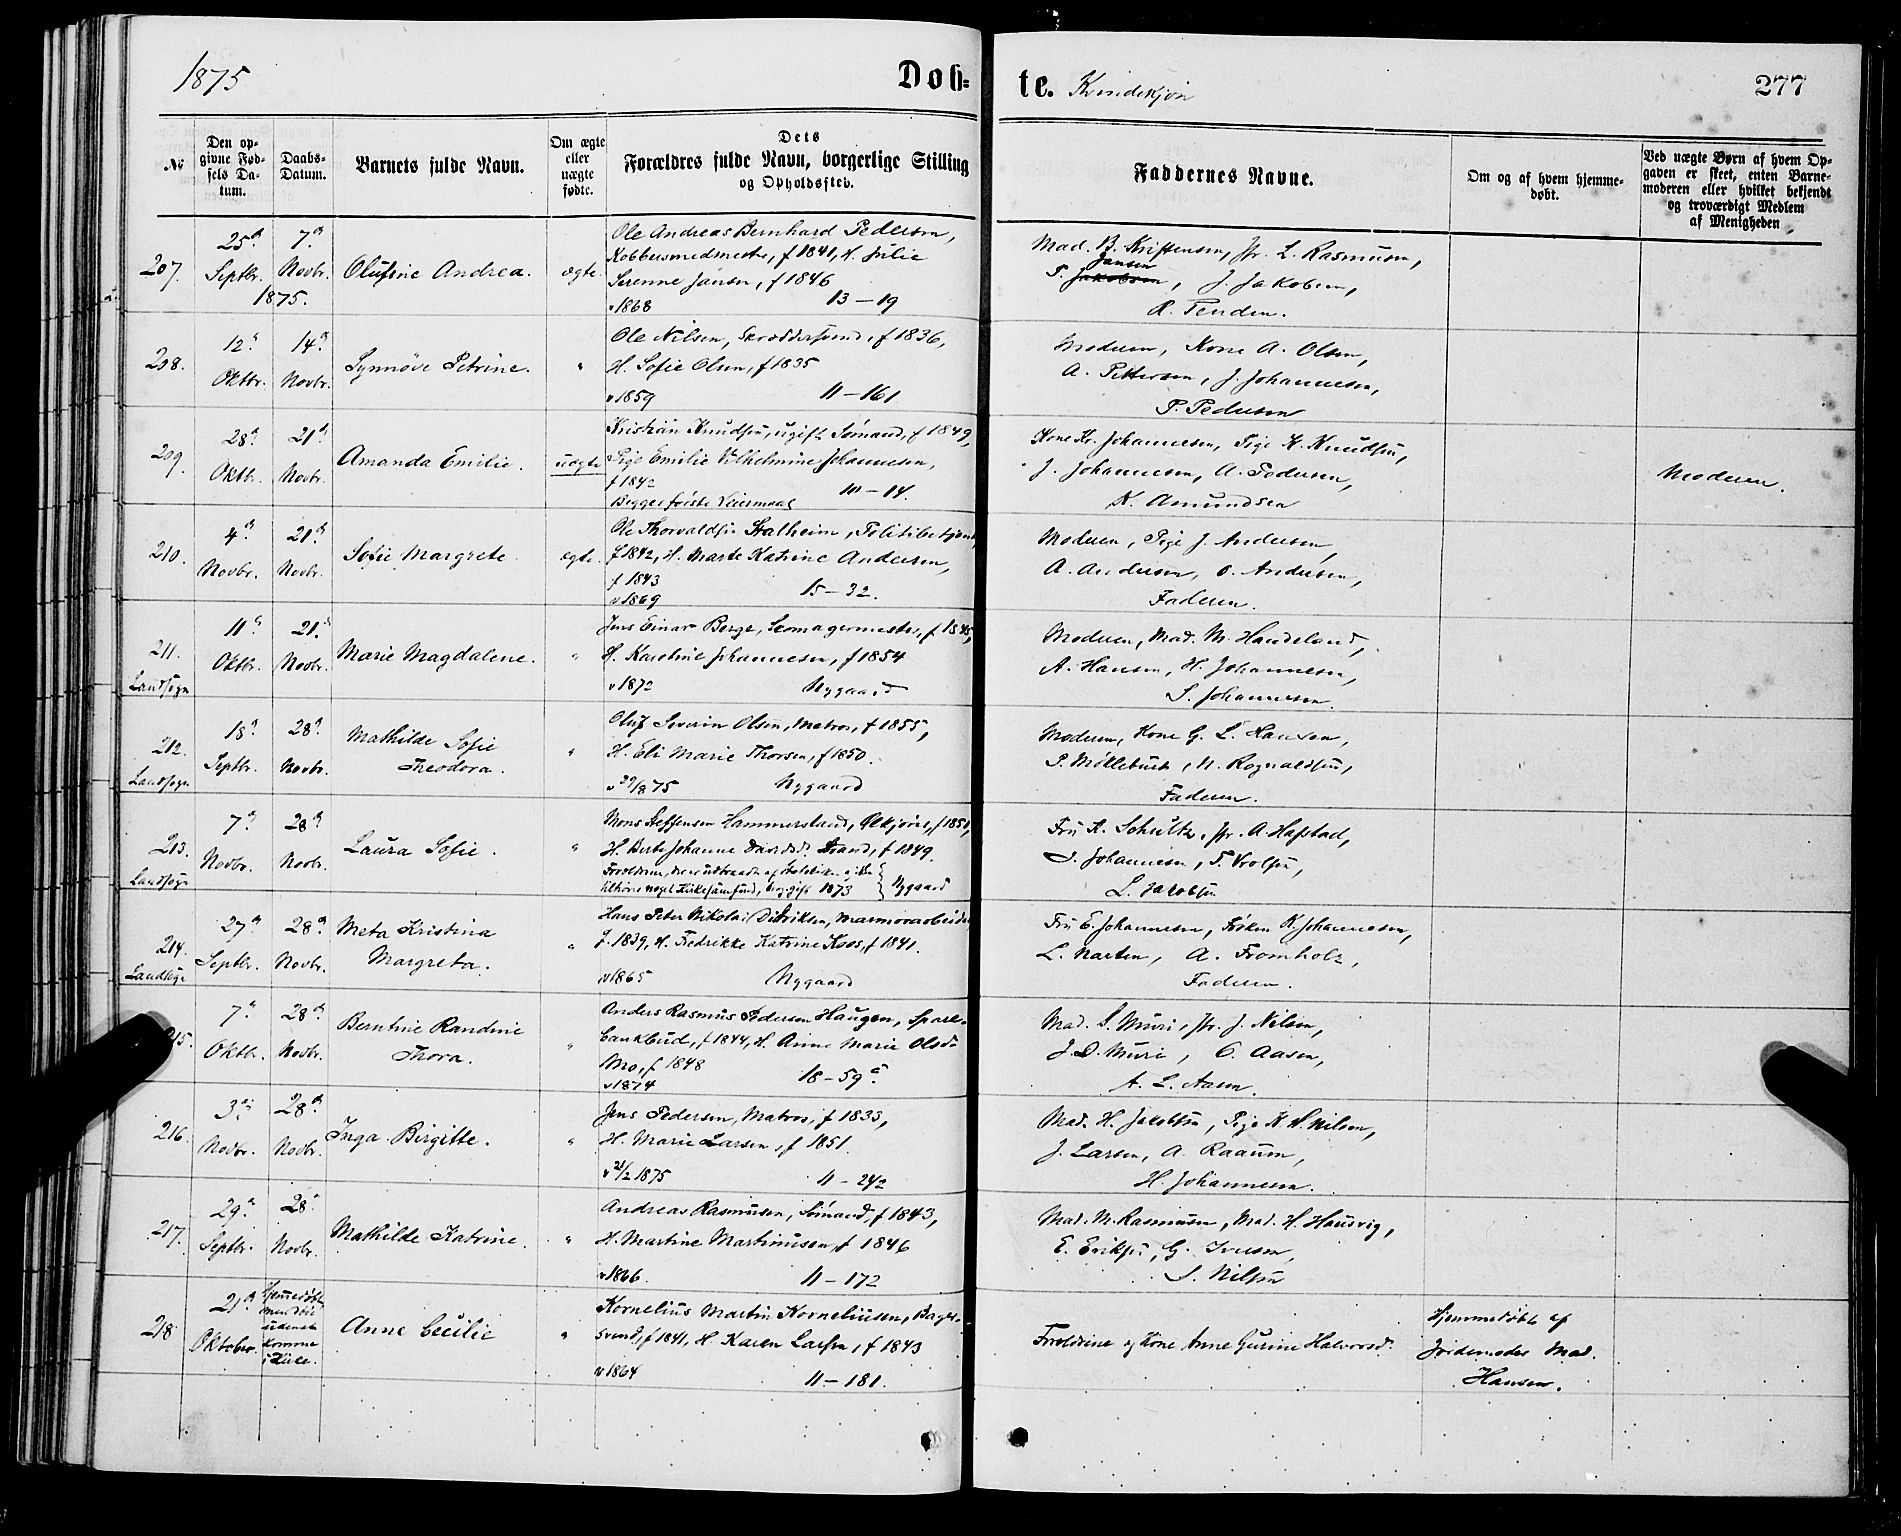 1875
Døb-
te. Kvindekjøn
277
No
Den op-
givne Fød-
sels Da-
tum.
Daabs-
Datum.
Barnets fulde Navn.
Om ægte
eller
uægte
fødte.
Dets
Forældres fulde Navn, borgerlige Stilling
og Opholdssted.
Faddernes Navne.
Om og af hvem hjemme-
døbt.
Ved uægte Børn af hvem Op-
gaven er skeet, enten Barne-
moderen eller hvilket bekjendt
og troværdigt Medlem
af Menigheden
207.
25de Septbr.
7de Novbr.
1875.
Olufine Andrea.
ægte
Ole Andreas Bernhard Pedersen,
Kobbersmedmester, f 1841, H. Julie
Serenne Jansen, f 1846
v 1868 13-19
Mad. B. Kristensen, Jfr. L. Rasmusen,
Jansen
P. Jakobsen, J. Jakobsen,
R. Tenden.
208.
12te Oktbr.
14de Novbr.
Synnøve Petrine.
"
Ole Nilsen, Skræddersvend, f 1836,
H. Sofie Olsen, f 1835
v 1859 11-161
Moderen, Kone A. Olsen,
A. Pettersen, J. Johannesen,
P. Pedersen
209.
28de Oktbr.
21de Novbr.
Amanda Emilie.
uægte
Kristian Knudsen, ugift Sømand, f 1849,
Pige Emilie Vilhelmine Johannesen,
f 1842 10-14.
Begges første Leiermaal
Kone Kr. Johannesen, Pige K. Knudsen,
J. Johannesen, A. Pedersen,
K. Amundsen
Moderen.
210.
4de Novbr.
21de Novbr.
Sofie Margrete.
ægte.
Ole Thorvaldsen Stalheim, Politibetjent,
f 1842, H. Marte Katrine Andersen,
f 1843
v 1869 15-32.
Moderen, Pige J. Andersen,
A. Andersen, O. Andersen,
Faderen.
211.
Landsogn
11te Oktbr.
21de Novbr.
Marie Magdalene.
"
Jens Einar Berge, Skomagermester, f 1845,
H. Karoline Johannesen, f 1854
v 1872 Nygaard
Moderen, Mad. M. Haudeland,
A. Hansen, H. Johannesen,
S. Johannesen.
212.
Landsogn
18de Septbr.
28de Novbr.
Mathilde Sofie
Theodora.
"
Oluf Severin Olsen, Matros, f 1855,
H. Eli Marie Thorsen, f 1850.
v 29/8 75 Nygaard
Moderen, Kone G. L. Hansen,
P. Møllebust, N. Rognaldsen,
Faderen.
213.
Landsogn
7de Novbr.
28de Novbr.
Laura Sofie.
"
Mons Steffensen Hammersland, f 1850,
H. Berte Johanne Davidsd. Strand, f 1849.
Forældrene, der er udtraadt af Statskirken og ikke
tilhører noget Kirkesamfund, borg. gift 1873 } Nygaard
Fru K. Schultz, Jfr. A. Hafstad,
J. Johannesen, T. Trolsen,
L. Jakobsen
214.
Landsogn
27de Septbr.
28de Novbr.
Meta Kristina
Margreta.
"
Hans Peter Nikolai Didriksen, Marmorarbeider,
f. 1839, H. Fredrikke Katrine Koos, f 1841.
v 1865 Nygaard
Fru E. Johannesen, Frøken K. Johannesen,
L. Narten, A. Fromholz,
Faderen.
215.
7de Oktbr.
28de Novbr.
Berntine Randine
Thora.
"
Anders Rasmus Pedersen Haugen, Spare-
bankbud, f 1844, H. Anne Marie Olsd.
Mo, f 1848
v 1874 18-59 a.
Mad. S. Muri, Jfr. J. Nilsen,
J. D. Muri, O. Aasen,
A. L. Aasen.
216.
3die Novbr.
28de Novbr.
Inga Birgitte.
"
Jens Pedersen, Matros, f 1833,
H. Marie Larsen, f 1851.
v 21/2 1875 11-242
Mad. H. Jakobsen, Pige K. H. Nilsen,
J. Larsen, A. Raaum,
H. Johannesen.
217.
29de Septbr.
28de Novbr.
Mathilde Katrine.
"
Andreas Rasmusen, Sømand, f 1843,
H. Martine Martinusen, f 1846
v 1866. 11-172
Mad. M. Rasmusen, Mad. H. Haudvig,
E. Eriksen, G. Iversen,
S. Nilsen
218.
21de Oktober.
Hjemmedøbt
men døde
udenat
komme
i Kirke.
Anne Cecilie
"
Kornelius Martin Korneliusen, Bager-
svend, f 1841, H. Karen Larsen, f 1843
v 1864 11-181.
Forældrene og Kone Anne Gurine Halvorsd.
Hjemmedøbt af
Jordemoder Mad.
Hansen.